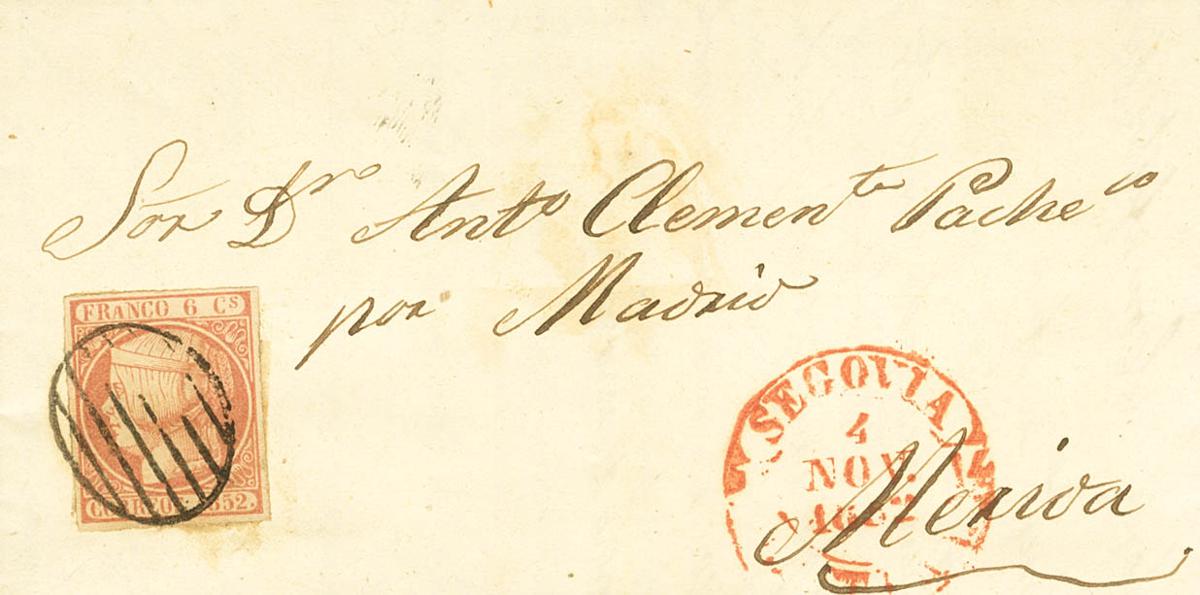 Sor Dn Anto Clementte Pacheco
por Madrid
FRANCO 6 Cs
CORREOS 1852.
SEGOVIA
4
NOV.
1852
Merida